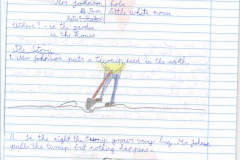 Mrs Johnson Kate
Ben little white mouse
Where? - in the garden
in the house
The Story
1. Mr Johnson puts a turnip seed in the earth.
II. In the night the turnip grows very big. Mr Johnson
pulls the turnip, but nothing happens.